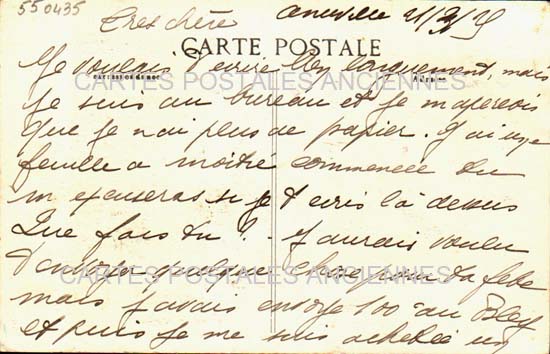 550435
Tres chère
CARTE POSTALE
Je voulais t ecrire bien longuement, mais
CARTES POSTALES ANCIENNES
je suis au bureau et je m'apercois
que je n'ai plus de papier. J'ai une
feuille a moitié commencée tu
m excuseras si je t ecris là dessus
Que fais tu ? J'aurais voulu
t'envoyer quelque chose pour ta fête
CARTES POSTALES ANCIENNES
mais j'avais envoyé 100 au
et puis je me suis acheté un